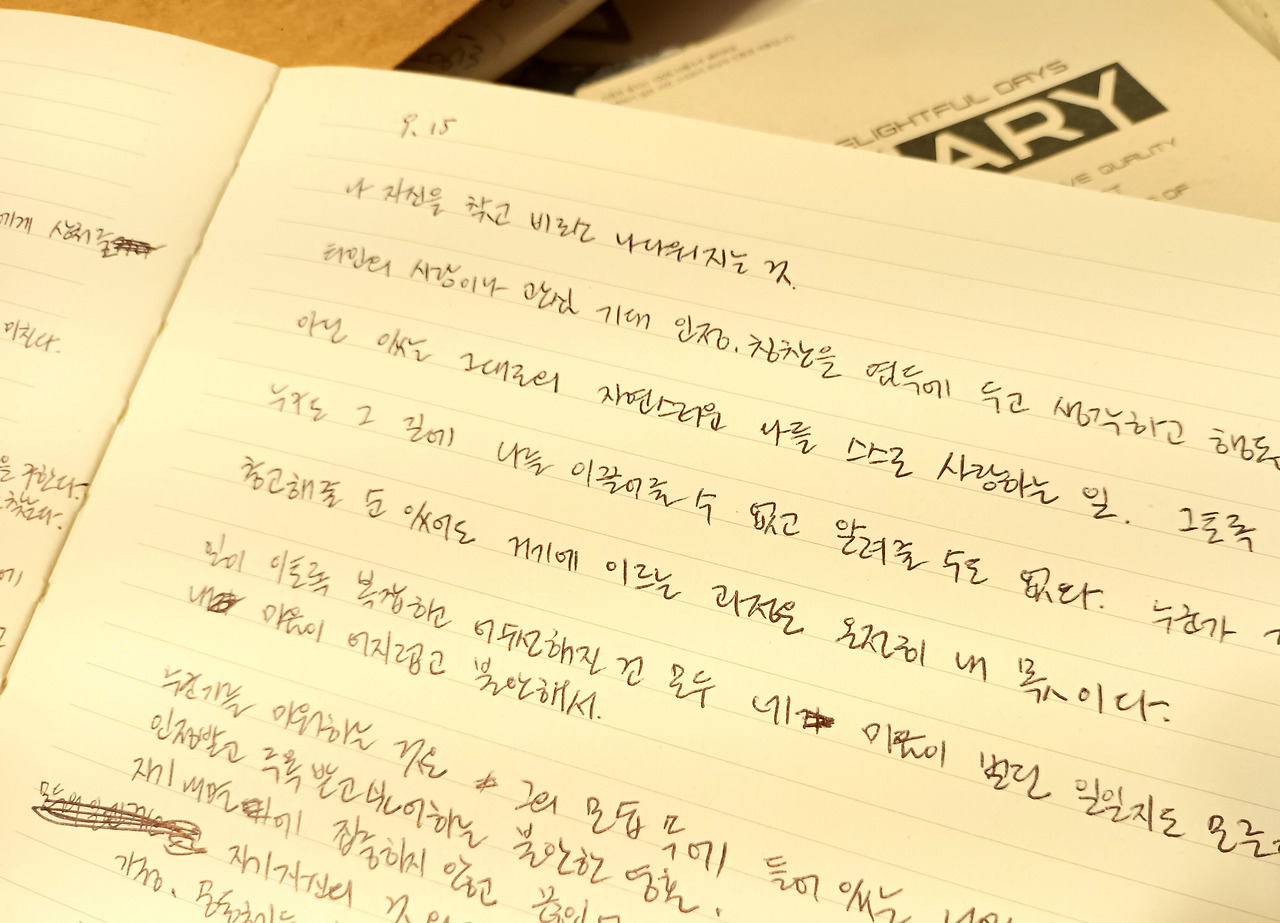 ELIGHTFUL DAYS
ARY
VE QUALITY
OF
에게 상처를
미친다.
을 구한다.
찾는다.
에
9. 15
나 자신을 찾고 비로소 나다워지는 것.
타인의 사랑이나 관심 기대 인정. 칭찬을 염두에 두고 생각하고 행동
아닌 있는 그대로의 자연스러운 나를 스스로 사랑하는 일. 그토록
누구도 그 길에 나를 이끌어줄 수 없고 알려줄 수도 없다. 누군가
충고해줄 순 있어도 거기에 이르는 과정은 온전히 내 몫이다.
일이 이토록 복잡하고 어두운해진 건 모두 네 마음이 벌인 일일지도 모른
내 마음이 어지럽고 불안해서.
누군가를 미워하는 것은 그의 모습 속에 들어 있는
인정받고 주목받고 싶어하는 불안한 영혼.
자기 내면에 집중하지 않고
자기자신의 것
가족.